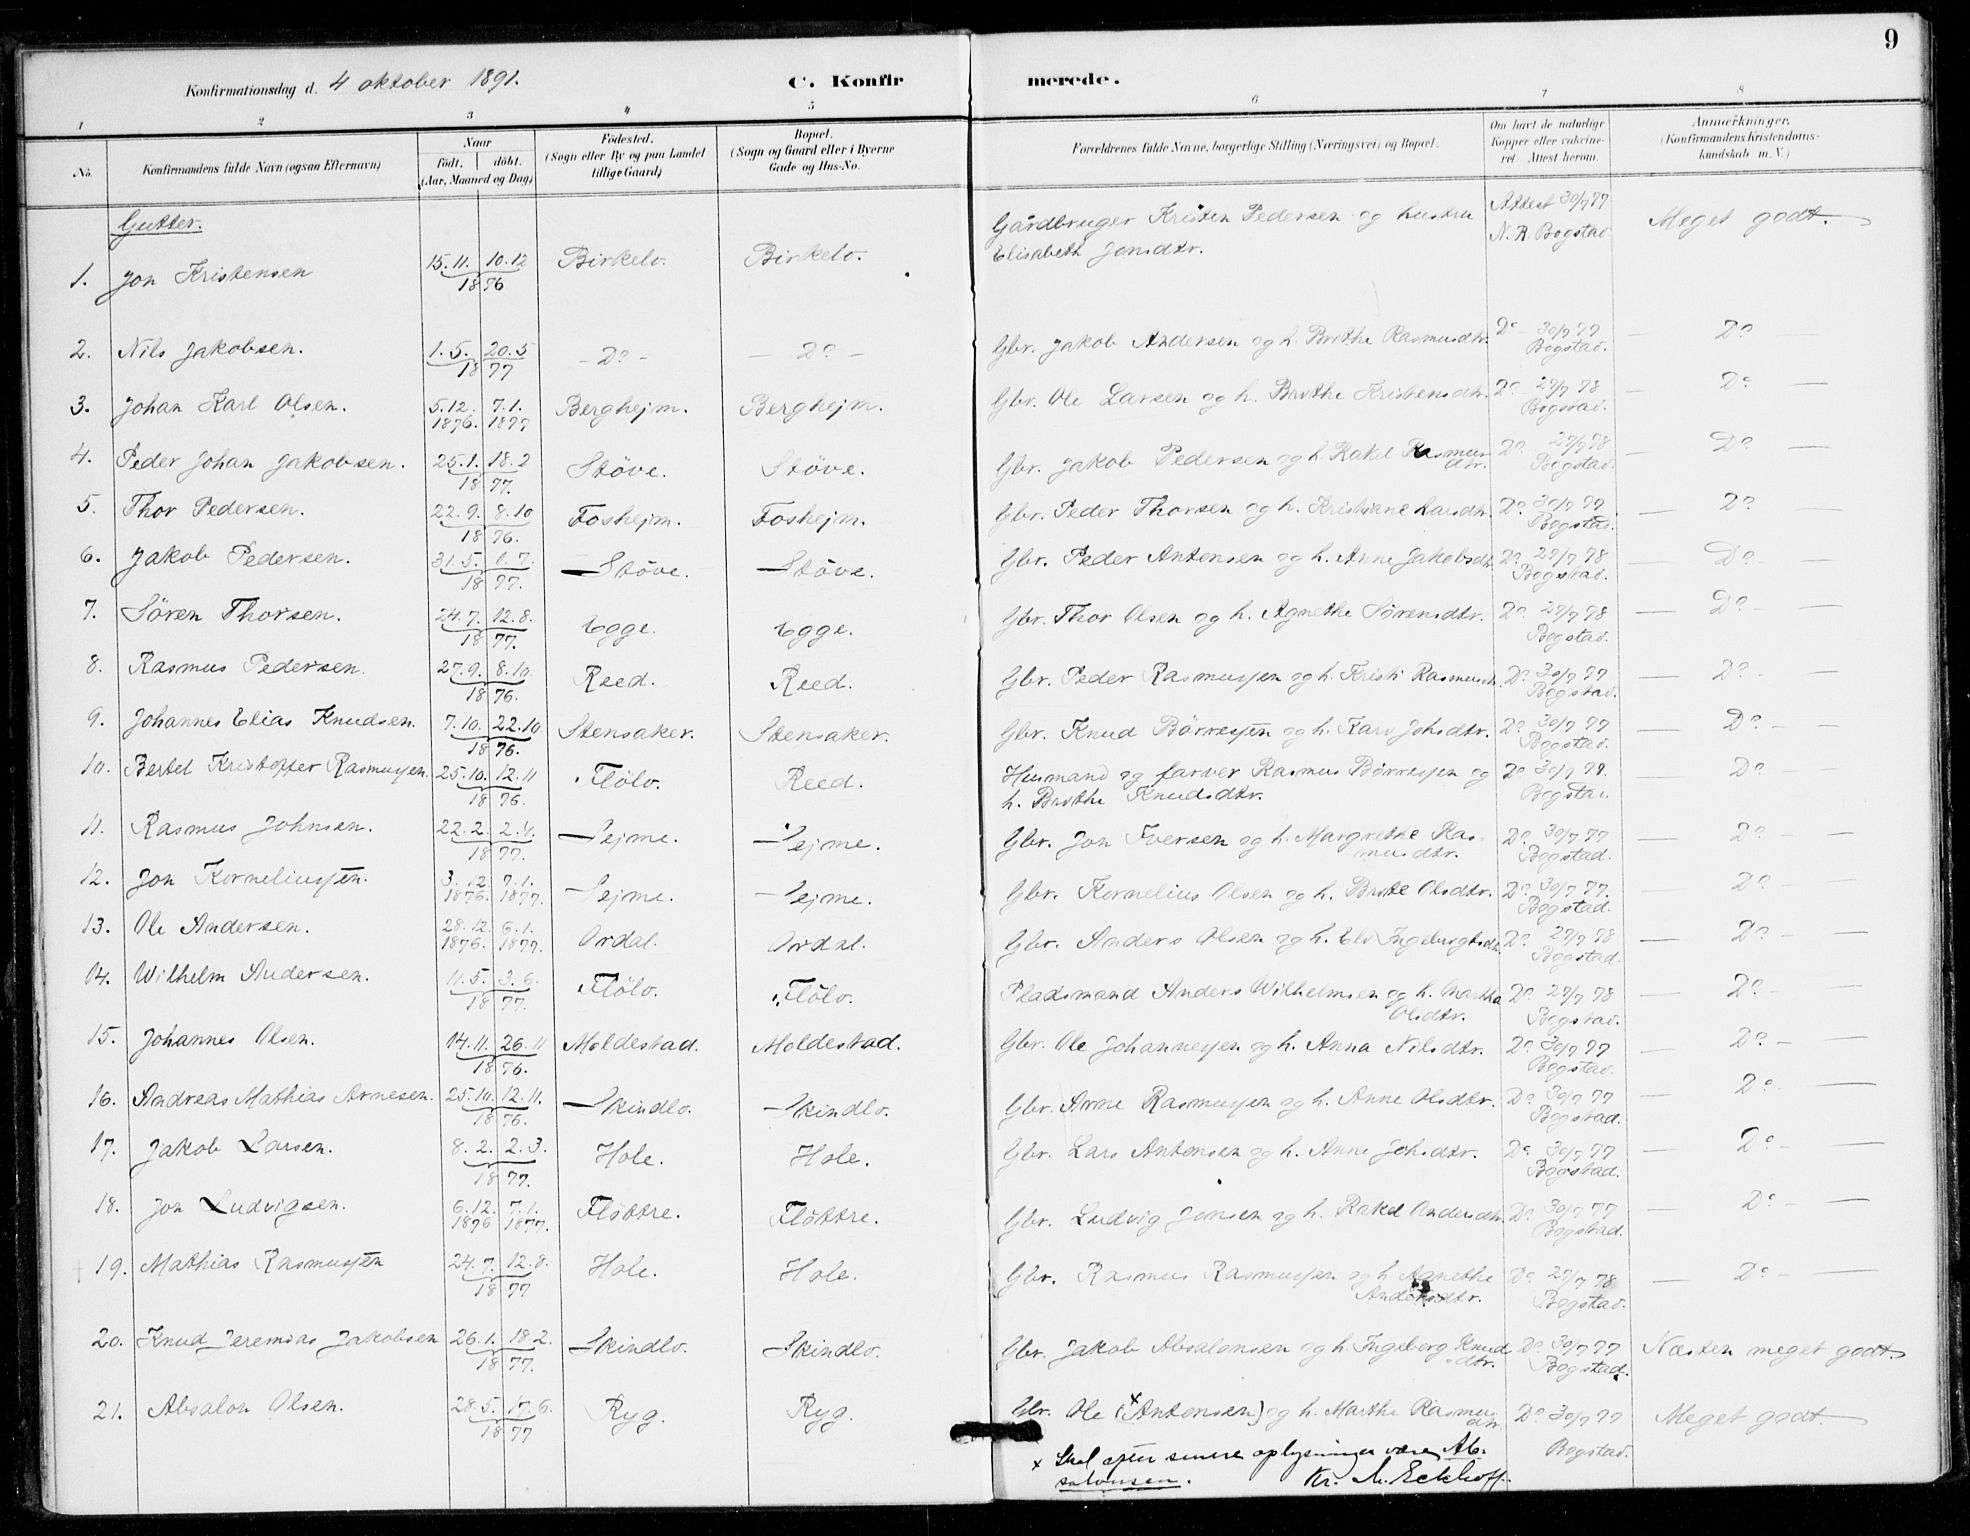 9
Konfirmationsdag d. 4 oktober 1891. C. Konfirmerede.
1 2 3 4 5 6 7 8
No. Konfirmandens fulde Navn (ogsaa Efternavn) Naar født. døbt. (Aar, Maaned og Dag) Fødested. (Sogn eller By og paa Landet tillige Gaard) Bopæl. (Sogn og Gaard eller i Byerne Gade og Hus-No. Forældrenes fulde Navne, borgerlige Stilling (Næringsvei) og Bopæl. Om havt de naturlige Kopper eller vakcineret. Attest herom. Anmærkninger. (Konfirmandens Kristendomskundskab m. V.)
Gutter.
1. Jon Kristensen 15.11. 10.12 1876 Birkelo. Birkelo. Gårdbruger Kristen Pedersen og hustru Elisabeth Jonsdtr. Attest 30/7 77 N. R. Bogstad Meget godt.
2. Nils Jakobsen. 1.5. 20.5 1877 - Do - - Do - Gbr. Jakob Andersen og h. Brithe Rasmusdtr. Do 30/7 77 Bogstad. - Do -
3. Johan Karl Olsen. 5.12. 1876. 7.1. 1877 Berghejm. Berghejm. Gbr. Ole Larsen og h. Brithe Kristensdtr. Do 27/7 78 Bogstad. - Do -
4. Peder Johan Jakobsen. 25.1. 18.2 1877. Støve. Støve. Gbr. Jakob Pedersen og h. Rakel Rasmusdtr. Do 27/7 78 Bogstad. - Do -
5. Thor Pedersen. 22.9. 8.10 1876. Foshejm. Foshejm. Gbr. Peder Thorsen og h. Kristiane Larsdtr. Do 30/7 77 Bogstad. - Do
6. Jakob Pedersen. 31.5. 1.7. 1877. Støve. Støve. Gbr. Peder Antonsen og h. Anne Jakobsdtr. Do 27/7 78 Bogstad. - Do -
7. Søren Thorsen. 24.7. 12.8. 1877. Egge. Egge. Gbr. Thor Olsen og h. Agnethe Sørensdtr. Do 27/7 78 Bogstad. - Do -
8. Rasmus Pedersen. 27.9. 8.10. 1876. Reed. Reed. Gbr. Peder Rasmussen og h. Kristi Rasmusdtr. Do 30/7 77 Bogstad. - Do -
9. Johannes Elias Knudsen. 7.10. 22.10 1876. Stensaker. Stensaker. Gbr. Knud Børresen og h. Kari Johsdtr. Do 30/7 77 Bogstad. - Do -
10. Bertel Kristoffer Rasmussen. 25.10. 12.11 1876. Flølo. Reed. Husmand og farver Rasmus Børresen og h. Brithe Knudsdtr. Do 30/7 77. Bogstad. - Do -
11. Rasmus Johnsen. 22.2. 2.4. 1877. Sejme. Sejme. Gbr. Jon Iversen og h. Margrethe Rasmusdtr. Do 30/7 77 Bogstad. - Do -
12. Jon Korneliussen. 3.12. 1876. 7.1. 1877. Sejme. Sejme. Gbr. Kornelius Olsen og h. Brite Olsdtr. Do 30/7 77. Bogstad. - Do -
13. Ole Andersen. 28.12. 1876. 6.1. 1877. Ordal. Ordal. Gbr. Anders Olsen og h. Eli Ingebrigtsdtr. Do 27/7 78 Bogstad. - Do -
14. Wilhelm Andersen. 11.5. 3.6. 1877. Flølo. Flølo. Pladsmand Anders Wilhelmsen og h. Martha Olsdtr. Do 27/7 78 Bogstad. - Do -
15. Johannes Olsen. 14.11. 26.11 1876. Moldestad. Moldestad. Gbr. Ole Johannessen og h. Anna Nilsdtr. Do 30/7 77 Bogstad. - Do -
16. Andreas Mathias Arnesen. 25.10. 12.11. 1876. Skindlo. Skindlo. Gbr. Arne Rasmussen og h. Anne Olsdtr. Do 30/7 77 Bogstad. - Do -
17. Jakob Larsen. 8.2. 2.3. 1877. Hole. Hole. Gbr. Lars Antonsen og h. Anne Johsdtr. Do 30/7 77 Bogstad. Do -
18. Jon Ludvigsen. 6.12. 1876 7.1. 1877. Fløttre. Fløttre. Gbr. Ludvig Jonsen og h. Rakel Andersdtr. Do 30/7 77 Bogstad. - Do -
19. Mathias Rasmussen 24.7. 12.8. 1877 Hole. Hole. Gbr. Rasmus Rasmussen og h Agnethe Andersdtr. Do 27/7 78 Bogstad. - Do -
20. Knud Jeremias Jakobsen 26.1. 18.2. 1877. Skindlo. Skindlo. Gbr. Jakob Absalonsen og h. Ingeborg Knudsdtr. Do 30/7 77 Bogstad. Næsten meget godt.
21. Absalon Olsen. 28.5. 17.6. 1877 Ryg. Ryg. Gbr. Ole (x Antonsen) og h. Marthe Rasmusdtr. Do 30/7 77 Bogstad. Meget godt.
x Skal efter senere oplysninger være Absalonsen. Kr. M. Eckhoff.